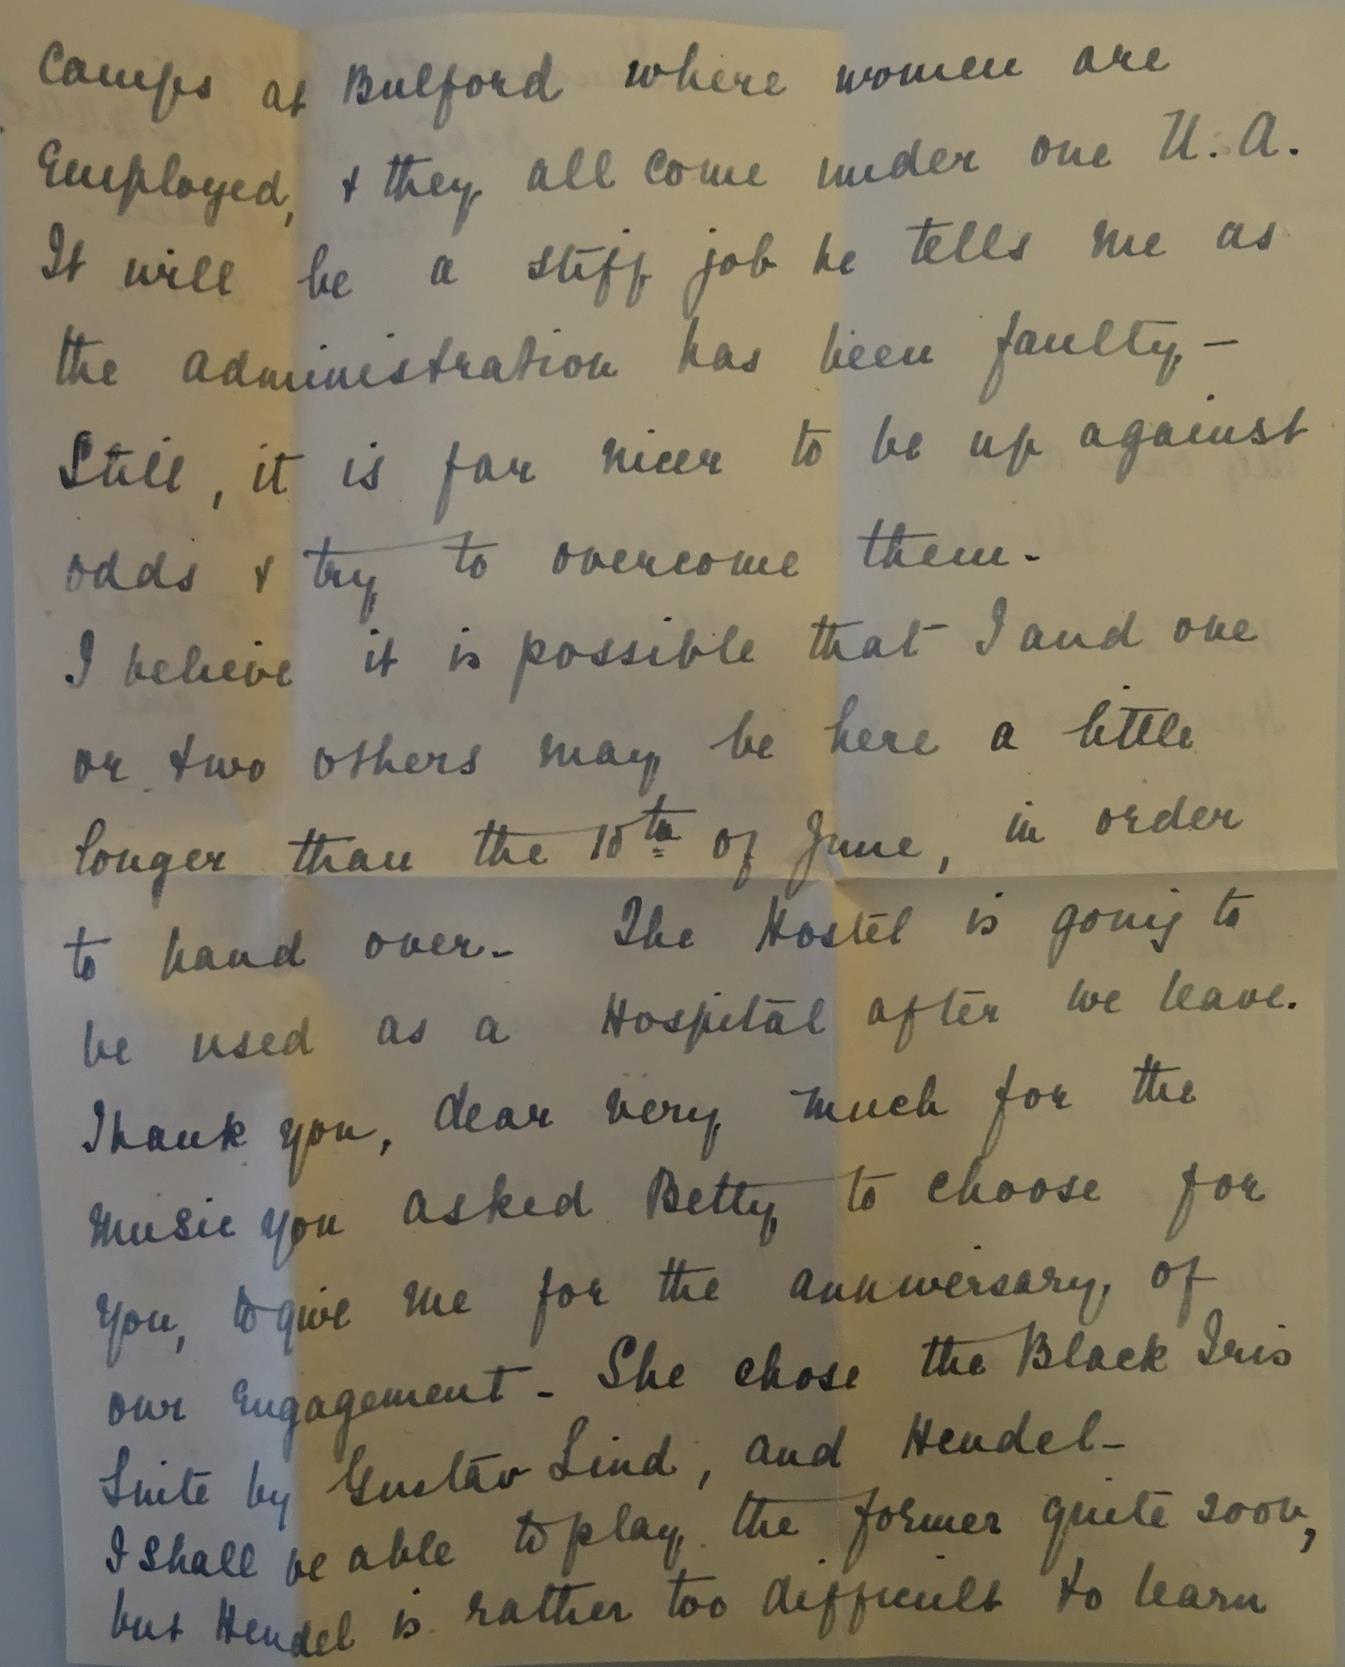 Camps at Bulford where women are
Employed, & they all come under one U.A.
It will be a stiff job he tells me as
the administration has been faulty, -
Still, it is far nicer to be up against
odds & try to overcome them -
I believe it is possible that I and one
or two others may be here a little
longer than the 10th of June, in order
to hand over - The Hostel is going to
be used as a Hospital after we leave.
Thank you, dear very much for the
music you asked Betty to choose for
you, to give me for the anniversary, of
our Engagement - She chose the Black Iris
Suite by Gustav Lind, and Hendel -
I shall be able to play the former quite soon,
but Hendel is rather too difficult to learn